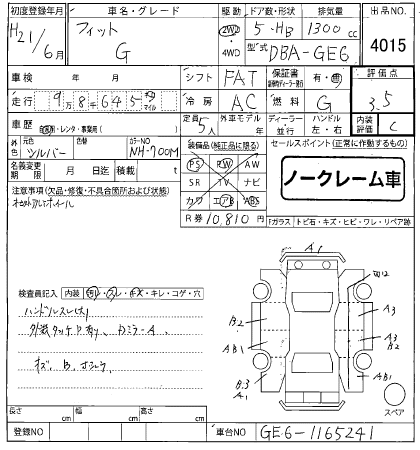 初度登録年月 車名・グレード 駆動 ドア数・形状 排気量 出品NO.
H21/6月 フィット G 2WD 4WD 5・HB 1300cc 4015
型式 DBA-GE6
車検 年 月 シフト FAT 保証書 有・無 評価点
走行 9万8千645 マイル 冷房 AC 燃料 G 3.5
車歴 自家用・レンタ・事業用( ) 定員 5人 外車モデル 年 ディーラー 並行 ハンドル 左・右 内装評価 C
外色 元色 シルバー 色替 カラーNO NH-700M
装備品(純正品に限る) セールスポイント(正常に作動するもの)
名義変更期限 月 日迄 積載 t
PS PW AW
SR TV ナビ
カワ エアB ABS
ノークレーム車
注意事項(欠品・修復・不具合箇所および状態)
R券 10,810円
Fガラス トビ石・キズ・ヒビ・ワレ・リペア跡
検査員記入 内装 汚レ・スレ・キズ・キレ・コゲ・穴
ハンドルスレ(大)
キズ、B、
A1
B2
A3
AB1
A3
B2
B3
A1
AB1
スペア
長さ cm 幅 cm 高さ cm
登録NO 車台NO GE6-1165241